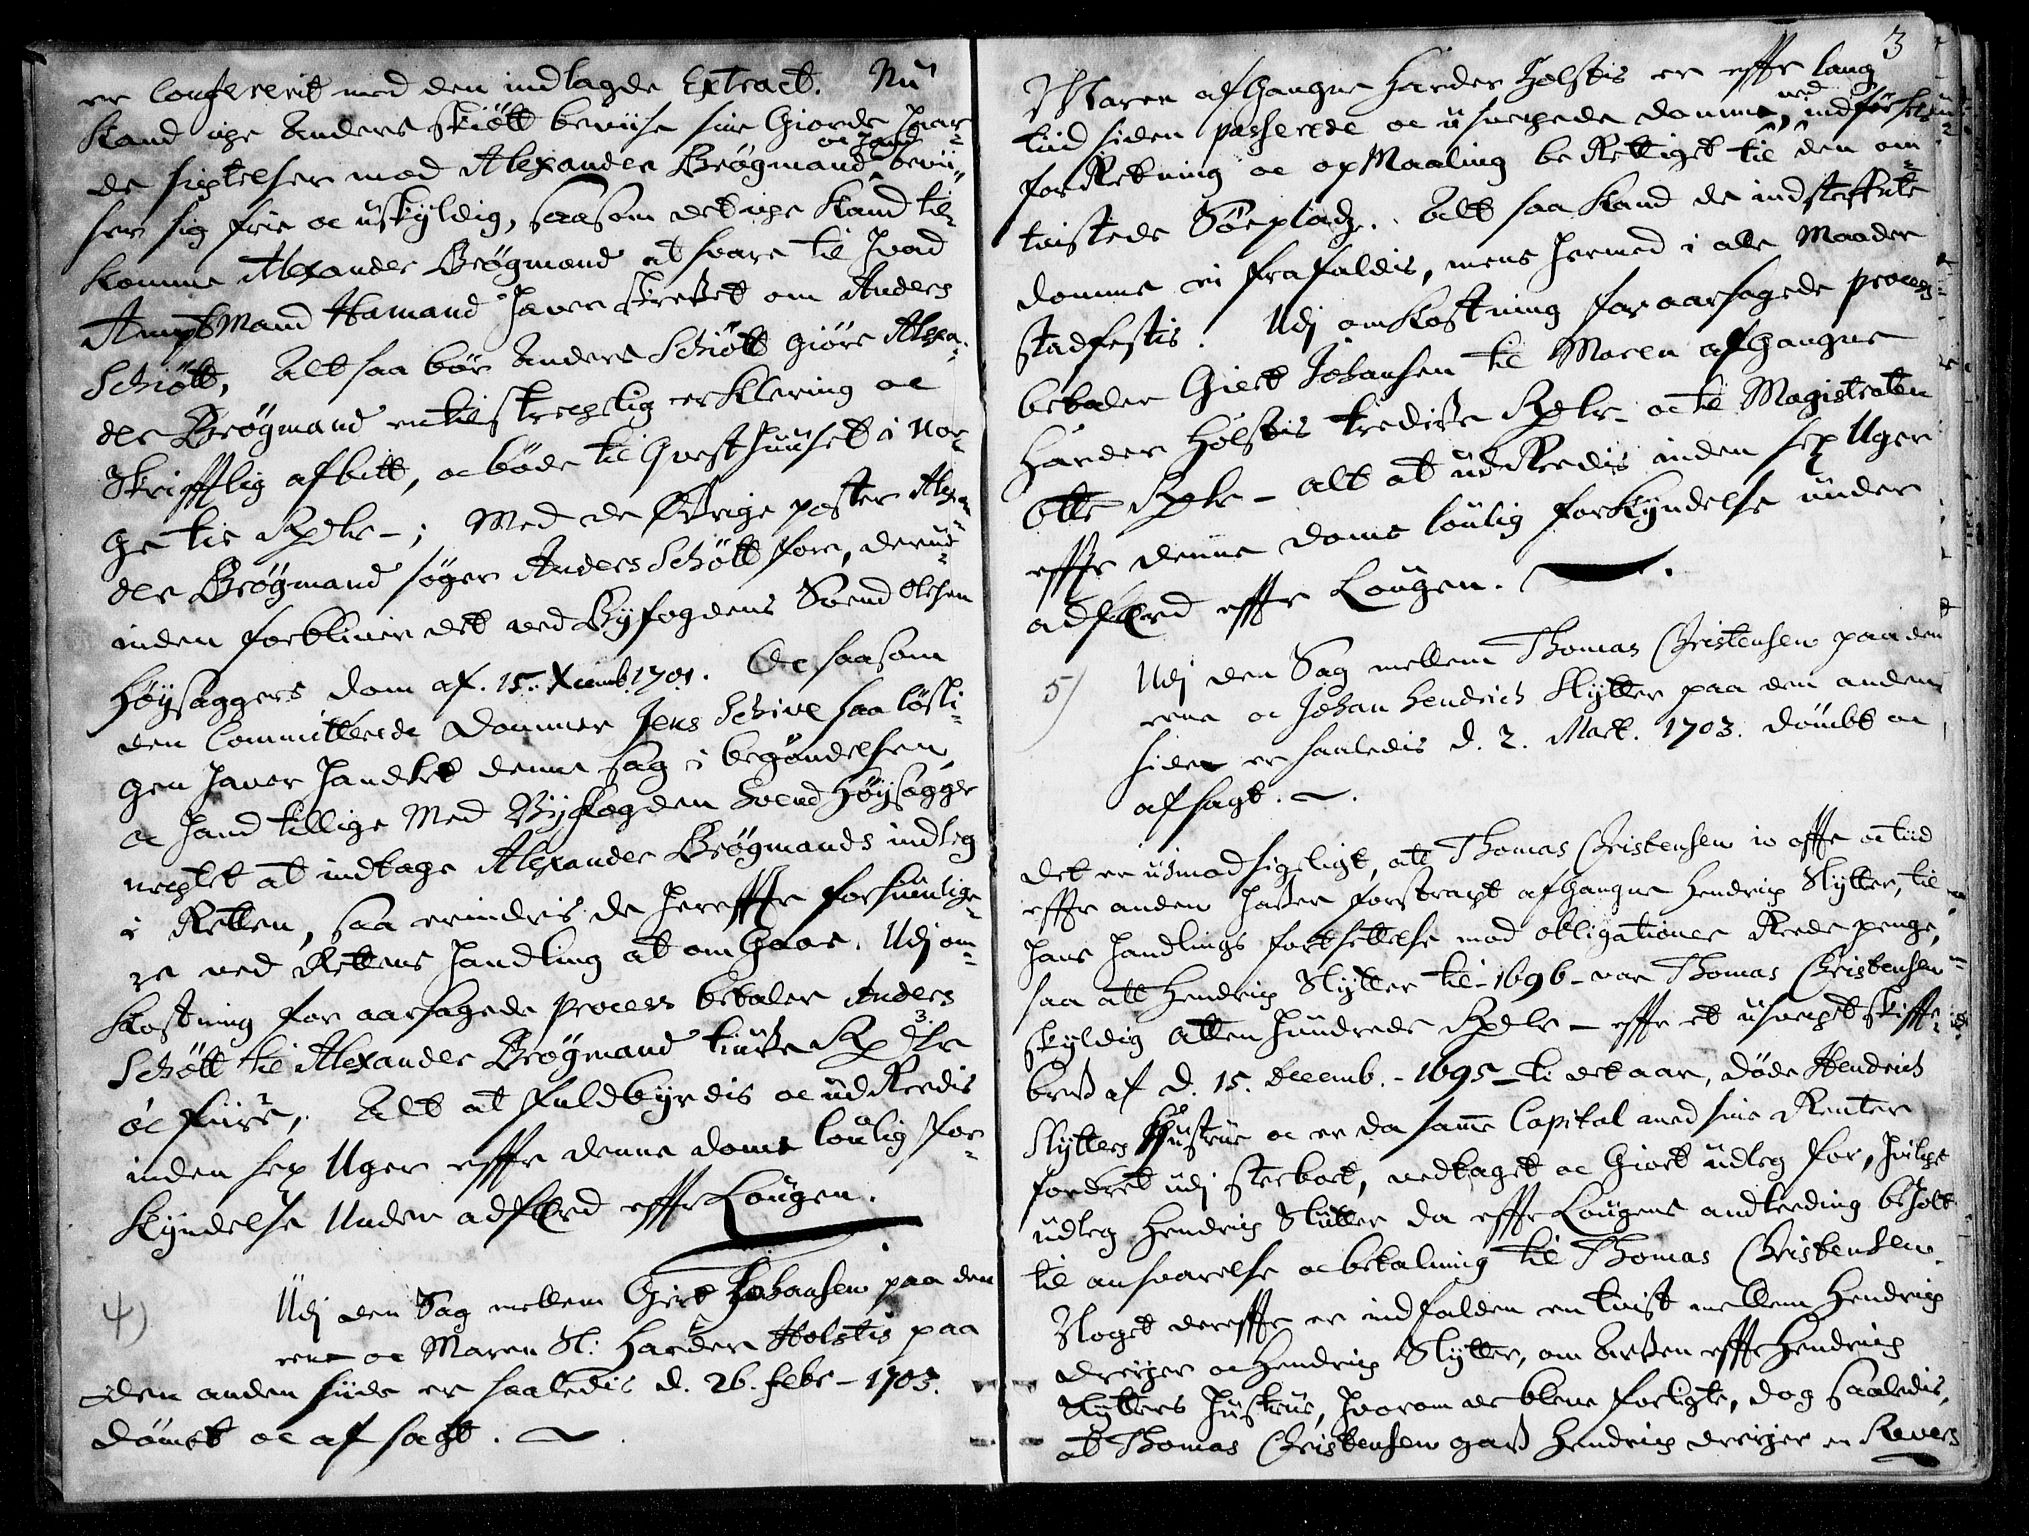 er Confererit med den indlagde Extract. Nu
Kand iche Anders Skiøtt beviise sine Giorde Haar-
de sigtelser mod Alexander Brøgmand oc Hand bevii-
ser sig frie oc uskyldig, saasom det iche Kand til-
komme Alexander Brøgmand at svare til Hvad
AmptMand Hamand Haver skrevet om Anders
Schiøtt, Alt saa bør Anders Schiøtt giøre Alexan-
der Brøgmand en tilstrechelig erklering oc
Skrifftlig afbitt, oc bøde til Qvesthuuset i Nor-
ge tie Rdr -; Med de Øfrige poster Alexan-
der Brøgmand søger Anders Schøtt for, derud-
inden forblivir det ved Byfogdens Svend Olsen
Høysaggers dom af 15. Xemb. 1701. Oc saasom
den Committerede dommer Jens Schive saa løsli-
gen Haver Handlet denne sag i begøndelsen,
oc Hand tillige Med Byfogden Svend Høysagger
negtet at indtage Alexander Brøgmands indleg
i Retten, saa erindris de Hereffter forsiunlige-
re ved Rettens Handling at omgaaes. Udj om-
Kostning for aarsagede Process betaler Anders
Schøtt til Alexander Brøgmand tiuve Rdr
oc fiire, Alt at fuldbyrdis oc udRedis
inden sex Uger effter denne doms loulig for-
Kyndelse Under adferd efftr Lougen.
4)
Udj den Sag mellem Giert Johansen paa den
eene oc Maren Sl: Harder Holstis paa
den anden siide er saaledis d. 26. febr - 1703.
dømet oc afsagt.
3
Maren afgangne Harder Holstis er efftr lang
tiid siden passerede oc usvechede domme, med indførsel
forRetning oc opMaaling beRettiget til den om-
tvistede Søepladz. Alt saa Kand de indsteffnte
domme ei frafaldis, mens Hermed i alle Maader
stadfestis. Udj omkostning foraarsagede process
betaler Giert Johansen til Maren afgangne
Harder Holstis tredive Rdlr - oc til Magistraten
Otte Rdlr - alt at udRedis inden sex Uger
efftr denne doms loulig forkyndelse under
adferd efftr Lougen.
5)
Udj den Sag mellem Thomas Christensen paa den
eene oc Johan Hendrich Slytter paa den anden
side er saaledis d. 2. Mart. 1703. dømbt oc
afsagt.
det er uimodsigeligt, att Thomas Christensen io offte oc tiid
efftr anden Haver forstragt afgangne Hendrig Slytter, til
Hans Handlings fortsettelse mod obligationer Rede penge,
saa att Hendrig Slytter til - 1696 - var Thomas Christensen
skyldig Atten Hundrede Rdlr - efftr et usveget skiffte-
brev af d. 15. Decemb. - 1695 - ti det aar, døde Hendrich
Slytters Hustrue oc er da samme Capital med sine Renter
fordret udj sterboet, vedtaget oc Giort udleg for, Hvilchet
udleg Hendrig Slytter da efftr Lougens andleeding beholt
til ansvarelse oc betalning til Thomas Christensen.
Noget derefftr er indfalden en tvist mellem Hendrig
dreyer oc Hendrig Slytter, om Arven efftr Hendrig
Slytters Hustrue, Hvorom de bleve forligte, dog saaledis,
at Thomas Christensen gav Hendrig dreyer en Revers